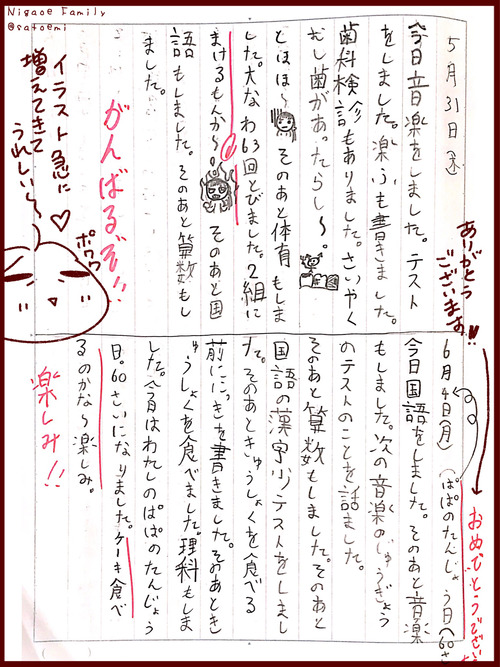 Nigaoe Family
@satoemi
5月31日(木)
今日音楽をしました。テスト
をしました。楽ふも書きました。
歯科検診もありました。さいやく
むし歯があったらし〜。
とほほ〜 そのあと体育もしま
した。大なわ63回とびました。2組に
まけるもんか〜。 そのあと国
語もしました。そのあと算数もし
ました。
がんばるぞ!!
イラスト急に
増えてきて
うれしい〜
ポワワ
ありがとう
ございます
6月4日(月) (ぱぱのたんじょう日(60さ
おめでとうござい
今日国語をしました。そのあと音楽
もしました。次の音楽のじゅうぎょう
のテストのことを話ました。
そのあと算数もしました。そのあと
国語の漢字小テストをしまし
た。そのあときゅうしょくを食べる
前ににっきを書きました。そのあとき
ゅうしょくを食べました。理科もしま
した。今日はわたしのぱぱのたんじょう
日。60さいになりました。ケーキ食べ
るのかな〜楽しみ。
楽しみ!!